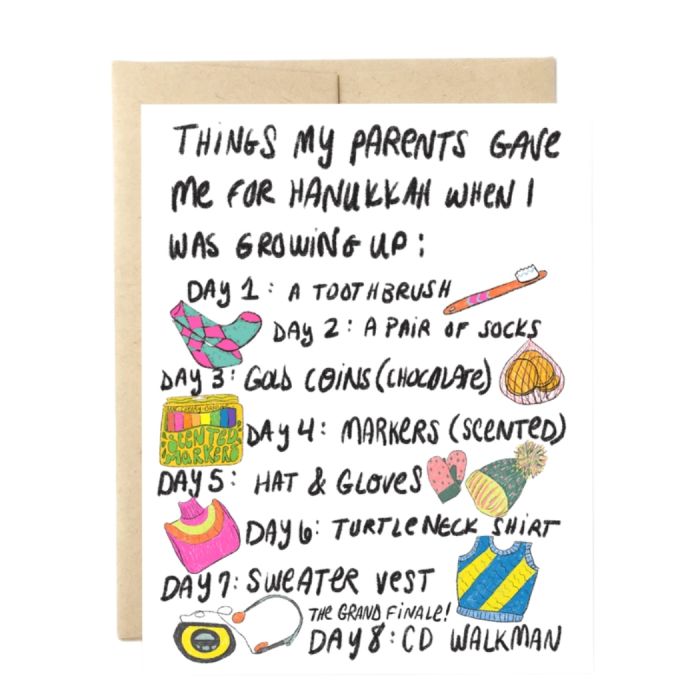 THINGS MY PARENTS GAVE
ME FOR HANUKKAH WHEN I
WAS GROWING UP:
DAY 1: A TOOTHBRUSH
DAY 2: A PAIR OF SOCKS
DAY 3: GOLD COINS (CHOCOLATE)
SCENTED
MARKERS
DAY 4: MARKERS (SCENTED)
DAY 5: HAT & GLOVES
DAY 6: TURTLENECK SHIRT
DAY 7: SWEATER VEST
THE GRAND FINALE!
DAY 8: CD WALKMAN